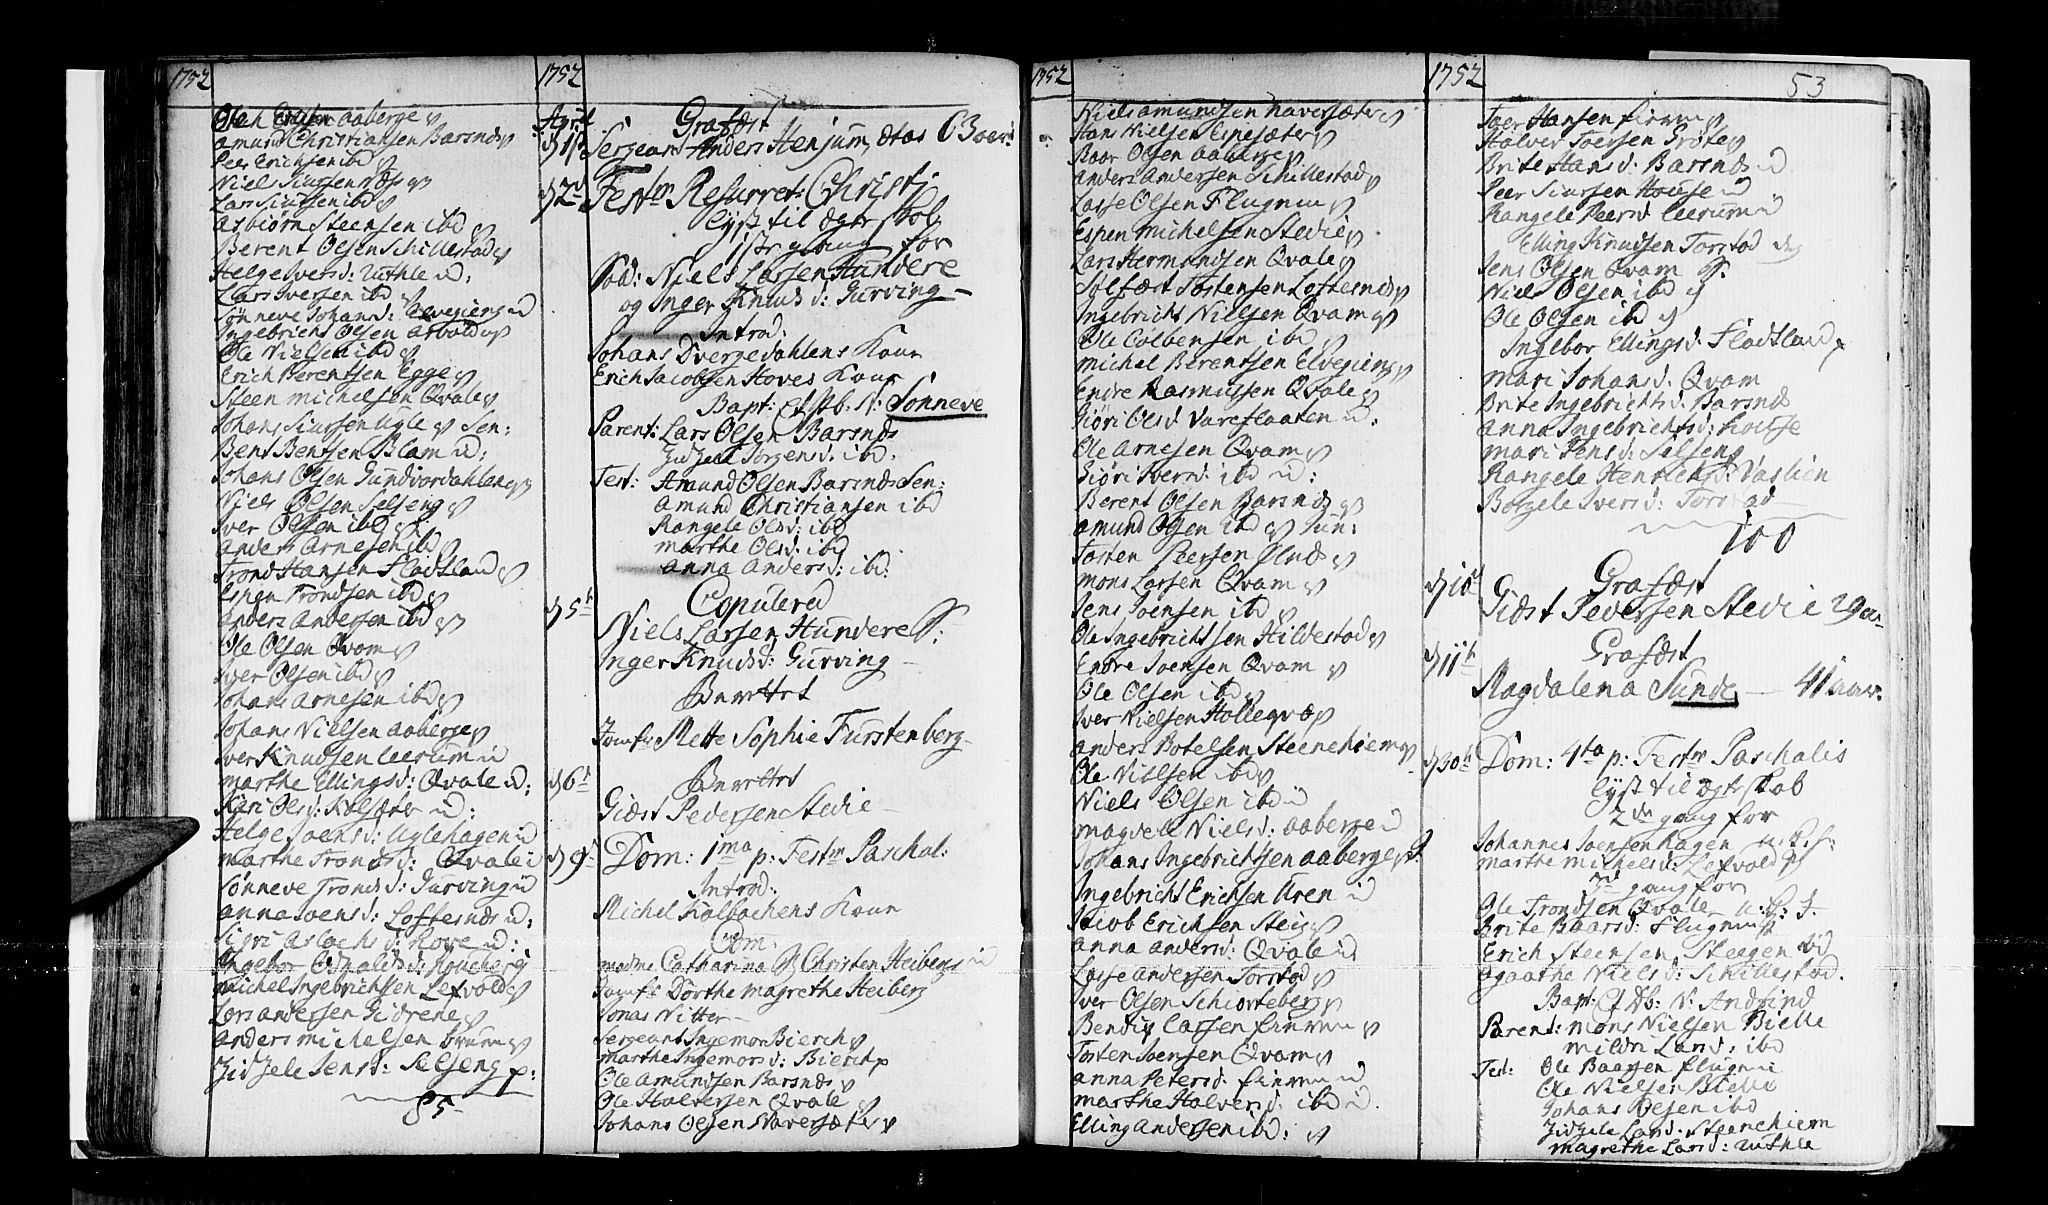 1752
Ole Erichsen Aaberge
Amund Christiansen Barsnæs
Peer Erichsen ibd
Niels Siursen Næss
Lars Siursen ibd
Asbiørn Steensen ibd
Berent Olsen Schillestad
Helge Iversd: Uuthle u:
Lars Iversen ibd
Sønneve Johansd: Elvegieng u
Ingebricht Olsen Arvold
Ole Nielsen ibd
Erich Berentsen Egge
Steen Michelsen Qvale
Johans Siursen Ugle Sen:
Bent Bentsen Blam u:
Johans Olsen Gundvordahlen
Niels Olsen Selseng
Iver Olsen ibd
Anders Arnesen ibd
Trond Hansen Fladtland
Espen Trondsen ibd
Anders Andersen ibd
Ole Olsen Qvam
Iver Olsen ibd
Johans Arnesen ibd
Johans Nielsen Aaberge
Iver Knudsen Leerum u
Marthe Ellingsd: Qvale u:
Kari Olsd: Kolsæter u:
Helge Joensd: Uglehagen u
Marthe Tronds d: Qvale
Sønneve Trondsd: Gurving u
Anna Joensd: Loftesnæs u:
Sigri Aslachsd: Hove u:
Ingebor Odvaldsd: Houcberg
Michel Ingebrichtsen Lefvold
Lars Andersen Gidrene
Anders Michelsen Bruun
Zidzele Jensd: Selseng p:
85
1752
April
d 1st
Grafæst
Sergeant Anders Henjum, ætas 63 aar:
d 2d
Festm Resurrect: Christj
lyst til ægteskab
1ste gang for
Sod: Niels Larsen Hundere
og Inger Knuds d: Gurving
Introd:
Johans Dvergedahlens Kone
Erich Jacobsen Hoves Kone
Bapt: Et Db. N: Sønneve
Parent: Lars Olsen Barsnæs
Zidzele Jørgensd: ibd:
Test: Amund Olsen Barsnæs Sen:
Amund Christiansen ibd
Rangele Olsd: ibd
Marthe Olsd: ibd
Anna Andersd: ibd:
d 5th
Copulered
Niels Larsen Hundere S:
Inger Knudsd: Gurving
Jomfr Mette Sophie Furstenberg
d 6th
Giæst Pedersen Stedie
d 9th
Dom: 1ma p: Festm Paschal:
Introd:
Michel Kalbachens Kone
Com.
Madme Catharina Christen Heibergs
Jomfr Dorthe Magrethe Heiberg
Jonas Nitter
Sergeant Ingemon Bierch
Marthe Ingemorsd: Bierch p
Ole Amundsen Barsnæs
Ole Halversen Qvale
Johans Olsen Naversæter
1752
Niels Amundsen Naversæter
Hans Nielsen Espesæter
Roar Olsen Aaberge
Anders Andersen Schillestad
Lasse Olsen Flugum
Espen Michelsen Stedie
Lars Hermandsen Qvale
Solfæst Tostensen Loftesnæs
Ingebricht Nielsen Qvam
Ole Colbensen ibd
Michel Berentsen Elvegieng
Endre Rasmussen Qvale
Giøri Olsd Vareflaaten u:
Ole Arnesen Qvam
Giøri Iversd: ibd u:
Berent Olsen Barsnæs
Amund Olsen ibd Jun:
Tosten Peersen Slinde
Mons Larsen Qvam
Jens Joensen ibd
Ole Ingebrichtsen Hildestad
Endre Joensen Qvam
Ole Olsen ibd
Iver Nielsen Holleqvæ
Anders Botelsen Steenehiem
Ole Nielsen ibd
Niels Olsen ibd
Magdele Nielsd: Aaberge
Johans Ingebrichtsen Aaberge
Ingebricht Erichsen Uren
Jacob Erichsen Stei
Anna Andersd: Qvale
Lasse Andersen Torstad
Iver Olsen Schiorteberg
Bendix Larsen Eirum
Tosten Joensen Qvam
Anna Petersd: Eirum
Marthe Halversd: ibd
Elling Andersen ibd:
1752
53
Iver Hansen Eirum
Halver Joersen Grøte
Brite Hans d: Barsnæs
Peer Siursen House
Rangele Peersd: Leerum
Elling Knudsen Torstad
Jens Olsen Qvam
Niels Olsen ibd
Ole Olsen ibd
Ingebor Ellingsd: Fladtland
Mari Johansd: Qvam
Brite Ingebrichtsd: Barsnæs
Anna Ingebrichtsd:
Mari Jensd: Selseng
Rangele Henrichsd: Vaslien
Bothele Iversd: Torstad
100
d 10d
Grafæst
Giæst Pedersen Stedie 29 aar
d 11th
Grafæst
Magdalena Sunde — 41 aar.
d 30th
Dom: 4ta p: Festm Paschalis
lyst til ægteskab
2den gang for
Johannes Joensen Hagen
Marthe Michelsd: Lefvold
3d gang for
Ole Trondsen Qvale u: B: f.
Brite Baarsd: Flugum
Erich Steensen Steegen
Agaathe Nielsd: Schillestad.
Bapt: Et Db: N: Andrind
Parent: Mons Nielsen Bielle
Mildri Larsd: ibd
Test: Ole Baarsen Flugum
Ole Nielsen Bielle
Johans Olsen ibd
Zidzele Larsd: Steenehiem
Magrethe Larsd: Uuthle